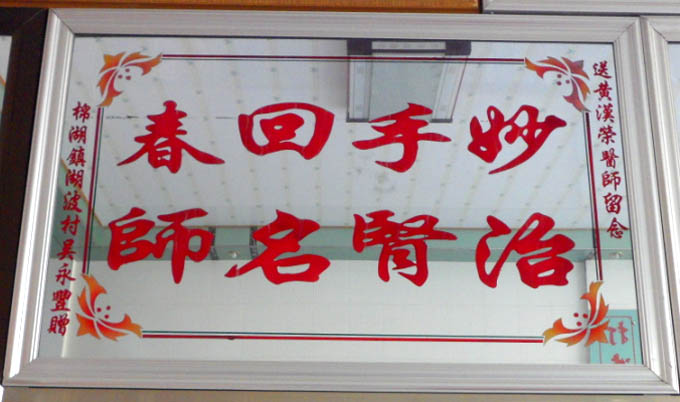 送黃漢榮醫師留念
妙手回春
治腎名師
棉湖鎮湖波村吴永豐贈